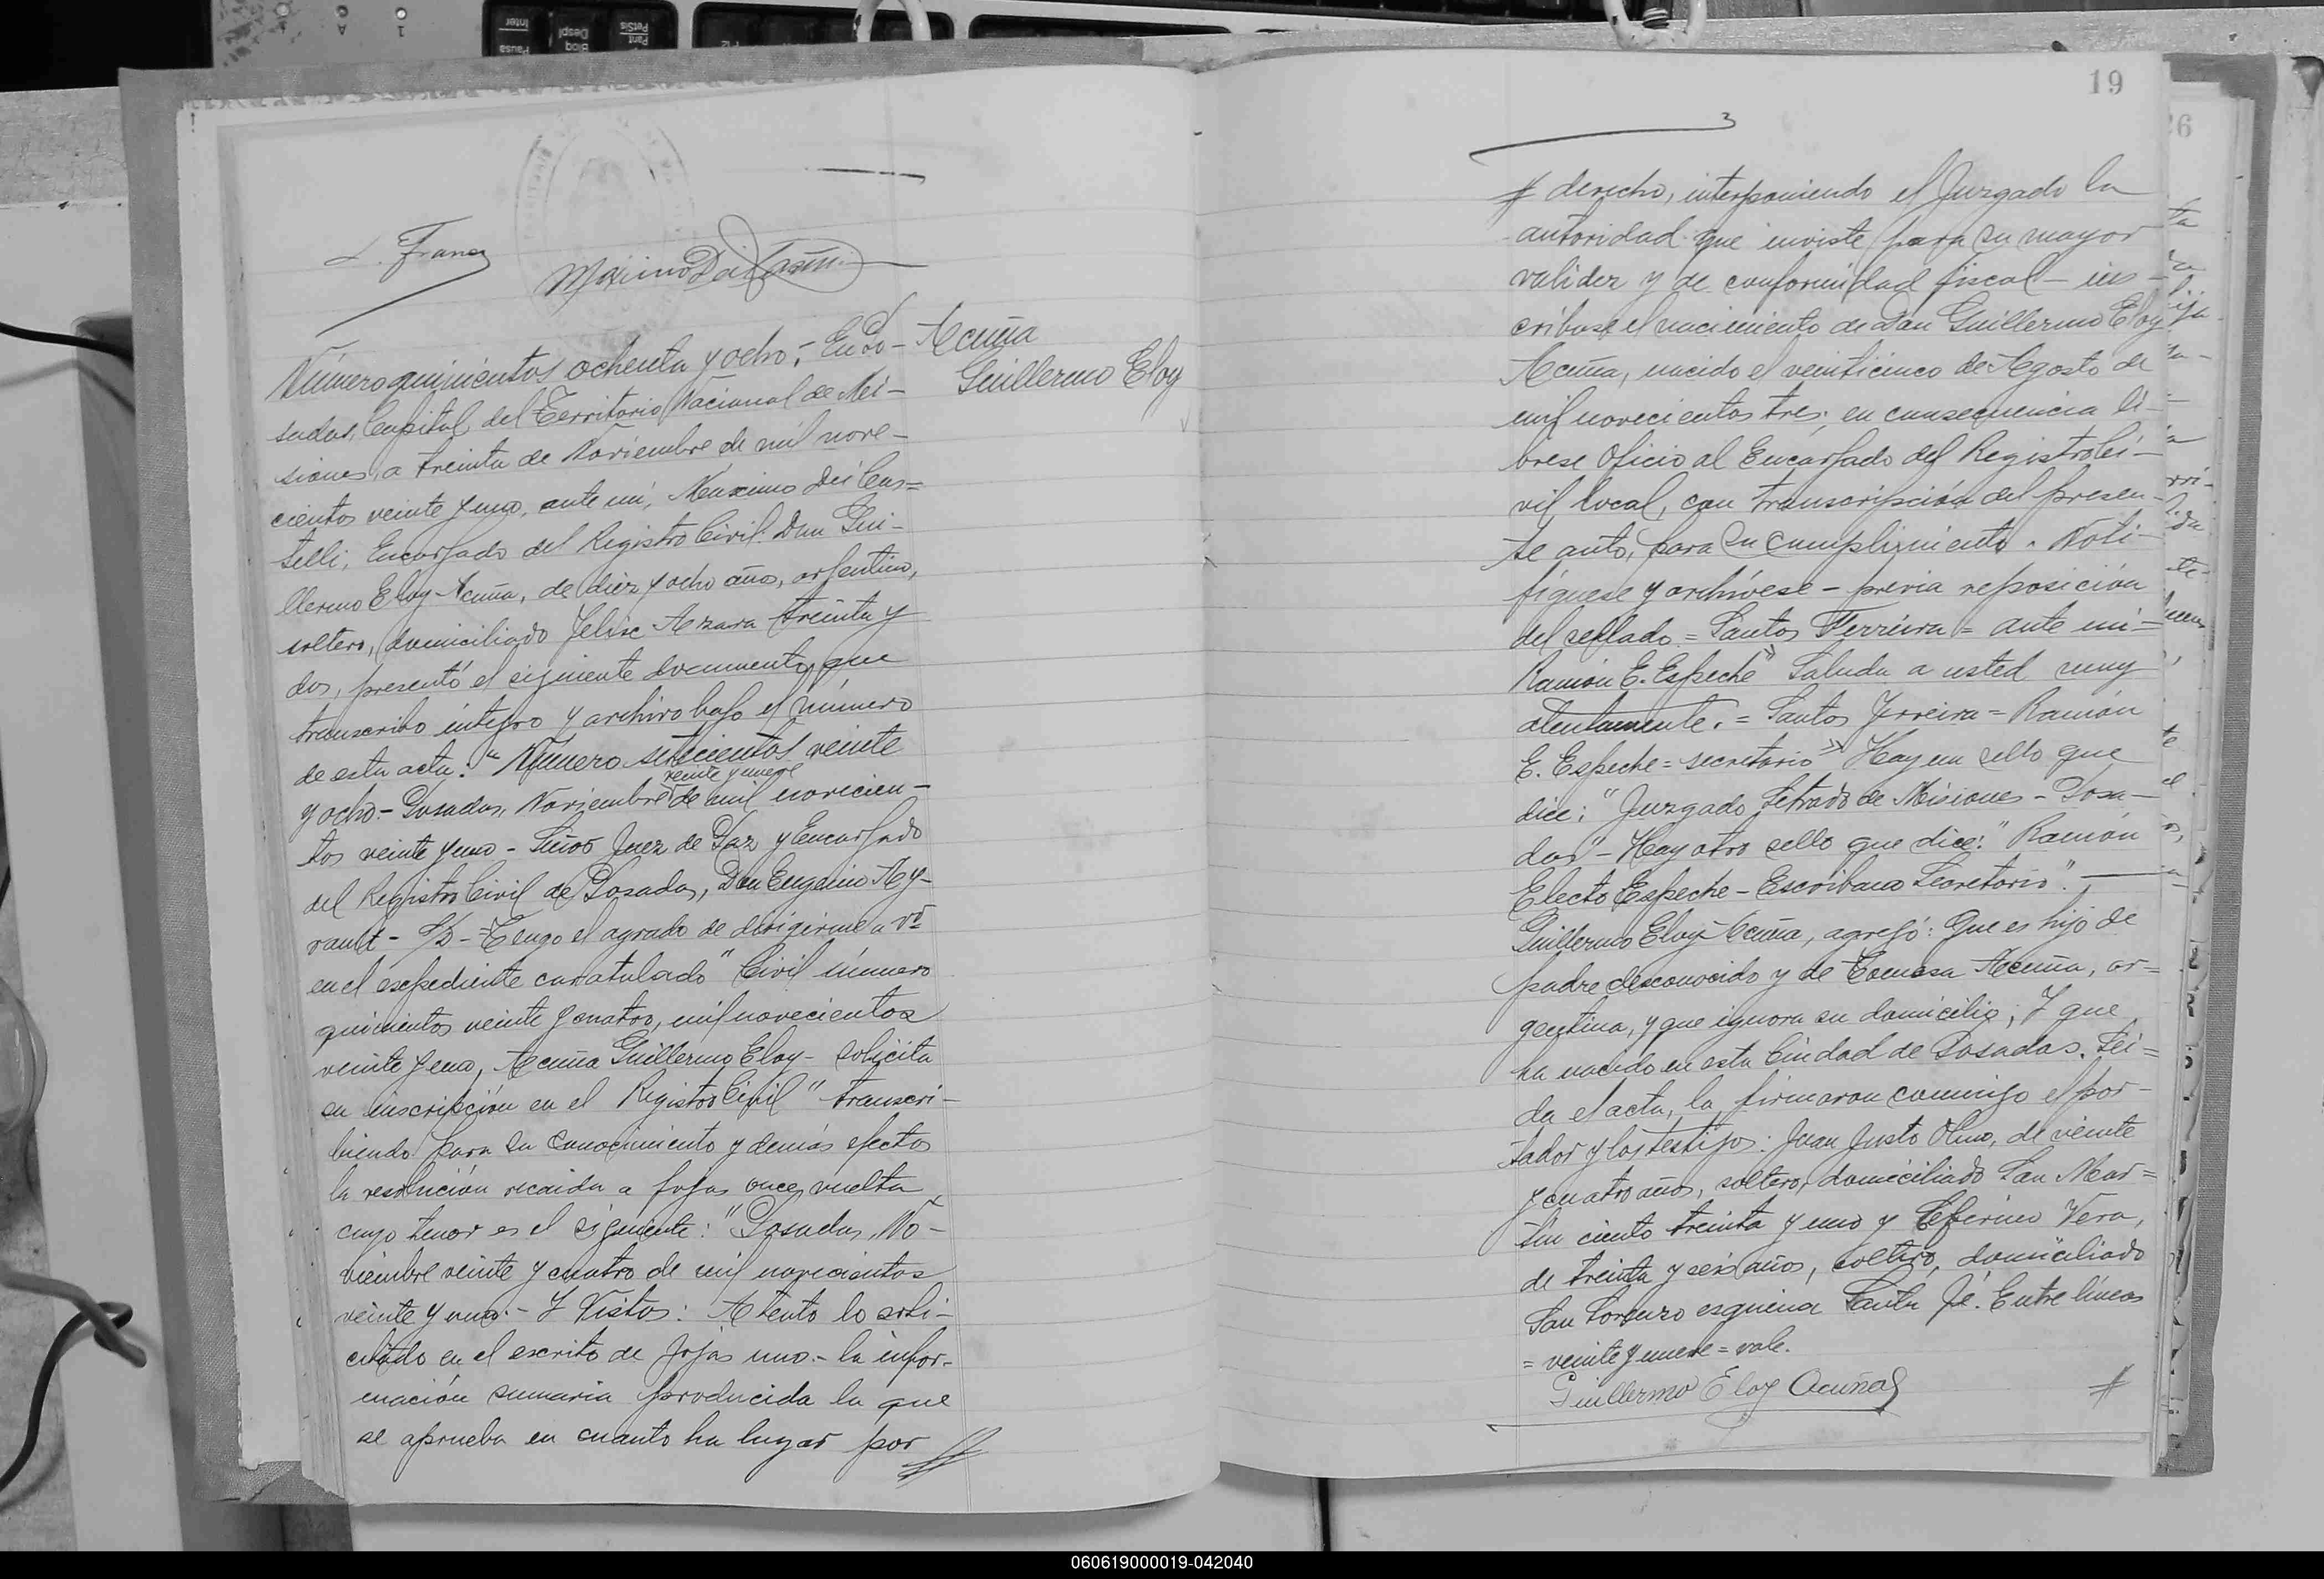 L. Franco
Número quinientos ochenta y ocho,- En Po-
sadas, Capital del Territorio Nacional de Mi-
siones, a treinta de Noviembre de mil nove-
cientos veinte y uno, ante mí, Maximo Dei Cas=
telli, Encargado del Registro Civil. Don Gui-
llermo Eloy Acuña, de diez y ocho años, argentino,
soltero, domiciliado Felix Azara treinta y
dos, presentó el siguiente documento, que
transcribo íntegro y archivo bajo el número
de esta acta: "Número setecientos veinte
veinte y nueve
y ocho- Posadas, Noviembre de mil novecien-
tos veinte y uno - Señor Juez de Paz y Encargado
del Registro Civil de Posadas, Don Eugenio Ay-
rault - S/D - Tengo el agrado de dirigirme a Vd
en el expediente caratulado "Civil número
quinientos veinte y cuatro, mil novecientos
veinte y uno, Acuña Guillermo Eloy - solicita
su inscripción en el Registro Civil" transcri-
biendo para su conocimiento y demás efectos
la resolución recaida a fojas once vuelta
cuyo tenor es el siguiente: "Posadas, No-
viembre veinte y cuatro de mil novecientos
veinte y uno.- Y Vistos: Atento lo soli-
citado en el escrito de fojas uno.- la infor-
mación sumaria producida la que
se aprueba en cuanto ha lugar por
Acuña
Guillermo Eloy
19
derecho, interponiendo el Juzgado la
autoridad que inviste para su mayor
validez y de conformidad fiscal - ins-
cribase el nacimiento de Don Guillermo Eloy
Acuña, nacido el veinticinco de Agosto de
mil novecientos tres; en consecuencia li-
brese Oficio al Encargado del Registro Ci-
vil local, con transcripción del presen-
te auto, para su cumplimiento. Noti-
fíquese y archívese - previa reposición
del sellado = Santos Ferreira = ante mi -
Ramón E. Espeche" Saluda a usted muy
atentamente. = Santos Ferreira = Ramón
E. Espeche = secretario" Hay un sello que
dice: "Juzgado Letrado de Misiones - Posa-
das" - Hay otro sello que dice: "Ramón
Electo Espeche - Escribano Secretario".
Guillermo Eloy Acuña, agregó: Que es hijo de
padre desconocido y de Tomasa Acuña, ar=
gentina, y que ignora su domicilio; Y que
ha nacido en esta Ciudad de Posadas. Lei=
da el acta, la firmaron conmigo el por-
tador y los testigos: Juan Justo Olmo, de veinte
y cuatro años, soltero, domiciliado San Mar=
tin ciento treinta y uno y Ceferino Vera,
de treinta y seis años, soltero, domiciliado
San Lorenzo esquina Santa Fé. Entre líneas
= veinte y nueve = vale.
Guillermo Eloy Acuña
060619000019-042040